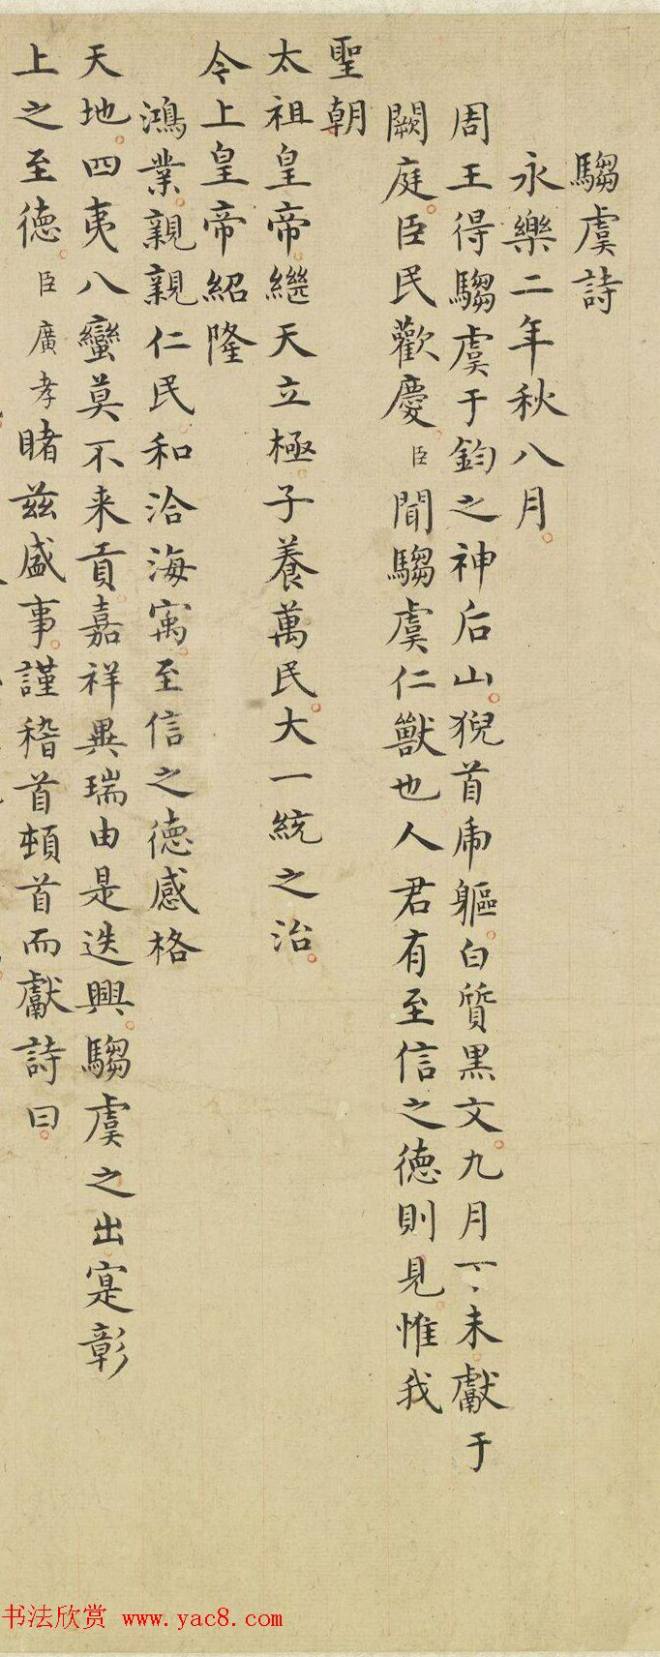 騶虞詩
永樂二年秋八月
周王得騶虞于鈞之神后山猊首虎軀白質黑文九月丁未獻于
闕庭臣民歡慶臣聞騶虞仁獸也人君有至信之德則見惟我
聖朝
太祖皇帝繼天立極子養萬民大一統之治
今上皇帝紹隆
鴻業親親仁民和洽海寓至信之德感格
天地四夷八蠻莫不来貢嘉祥異瑞由是迭興騶虞之出寔彰
上之至德臣廣孝睹茲盛事謹稽首頓首而獻詩曰
书法欣赏 www.yac8.com